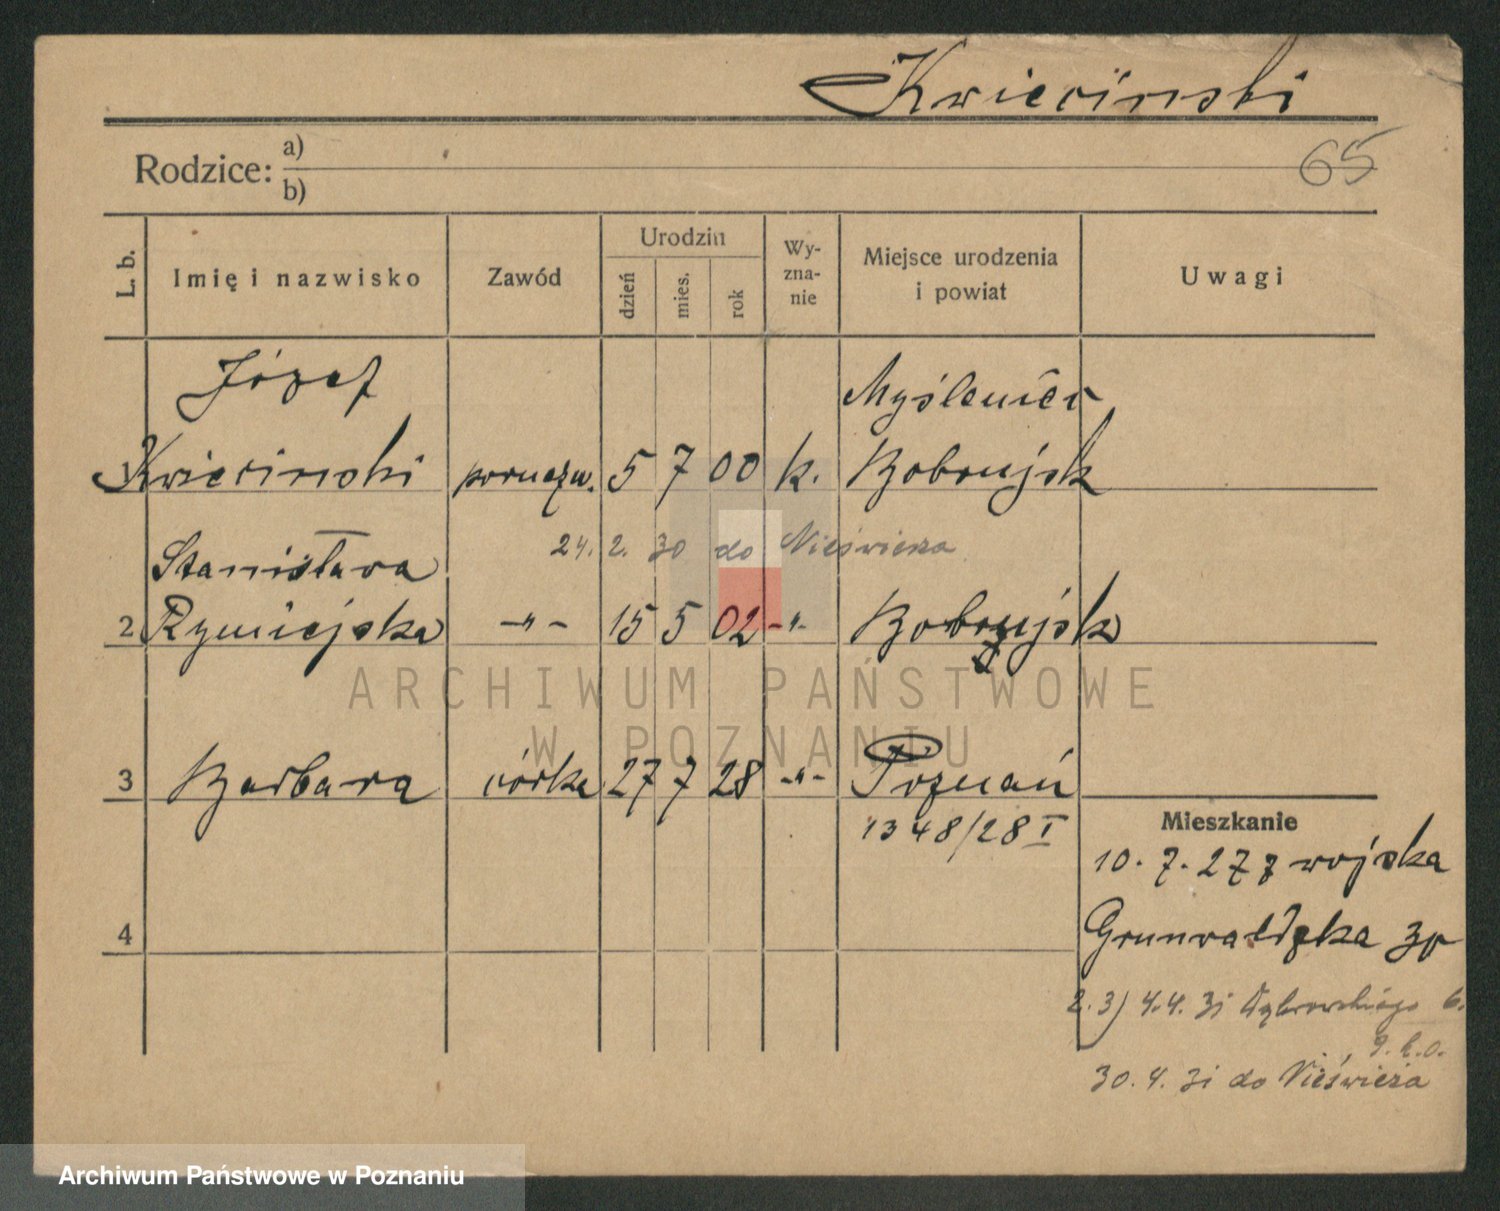 Kwieciński
65
Rodzice: a)
b)
L. b.
Imię i nazwisko
Zawód
Urodzin
dzień
mies.
rok
Wy-
zna-
nie
Miejsce urodzenia
i powiat
Uwagi
Józef
Myślenice
1 Kwieciński poruczn. 5 7 00 k. Bobrujsk
24. 2. 30 do Nieświeża
Stanisława
2 Rymiejska -"- 15 5 02 -"- Bobrujsk
3 Barbara córka 27 7 28 -"- Poznań
1348/28 I
Mieszkanie
10. 7. 27 z wojska
4
Grunwaldzka
2.3) 4.4. 31 Dąbrowskiego 6.
30. 4. 31 do Nieświeża
ARCHIWUM PAŃSTWOWE
W POZNANIU
Archiwum Państwowe w Poznaniu